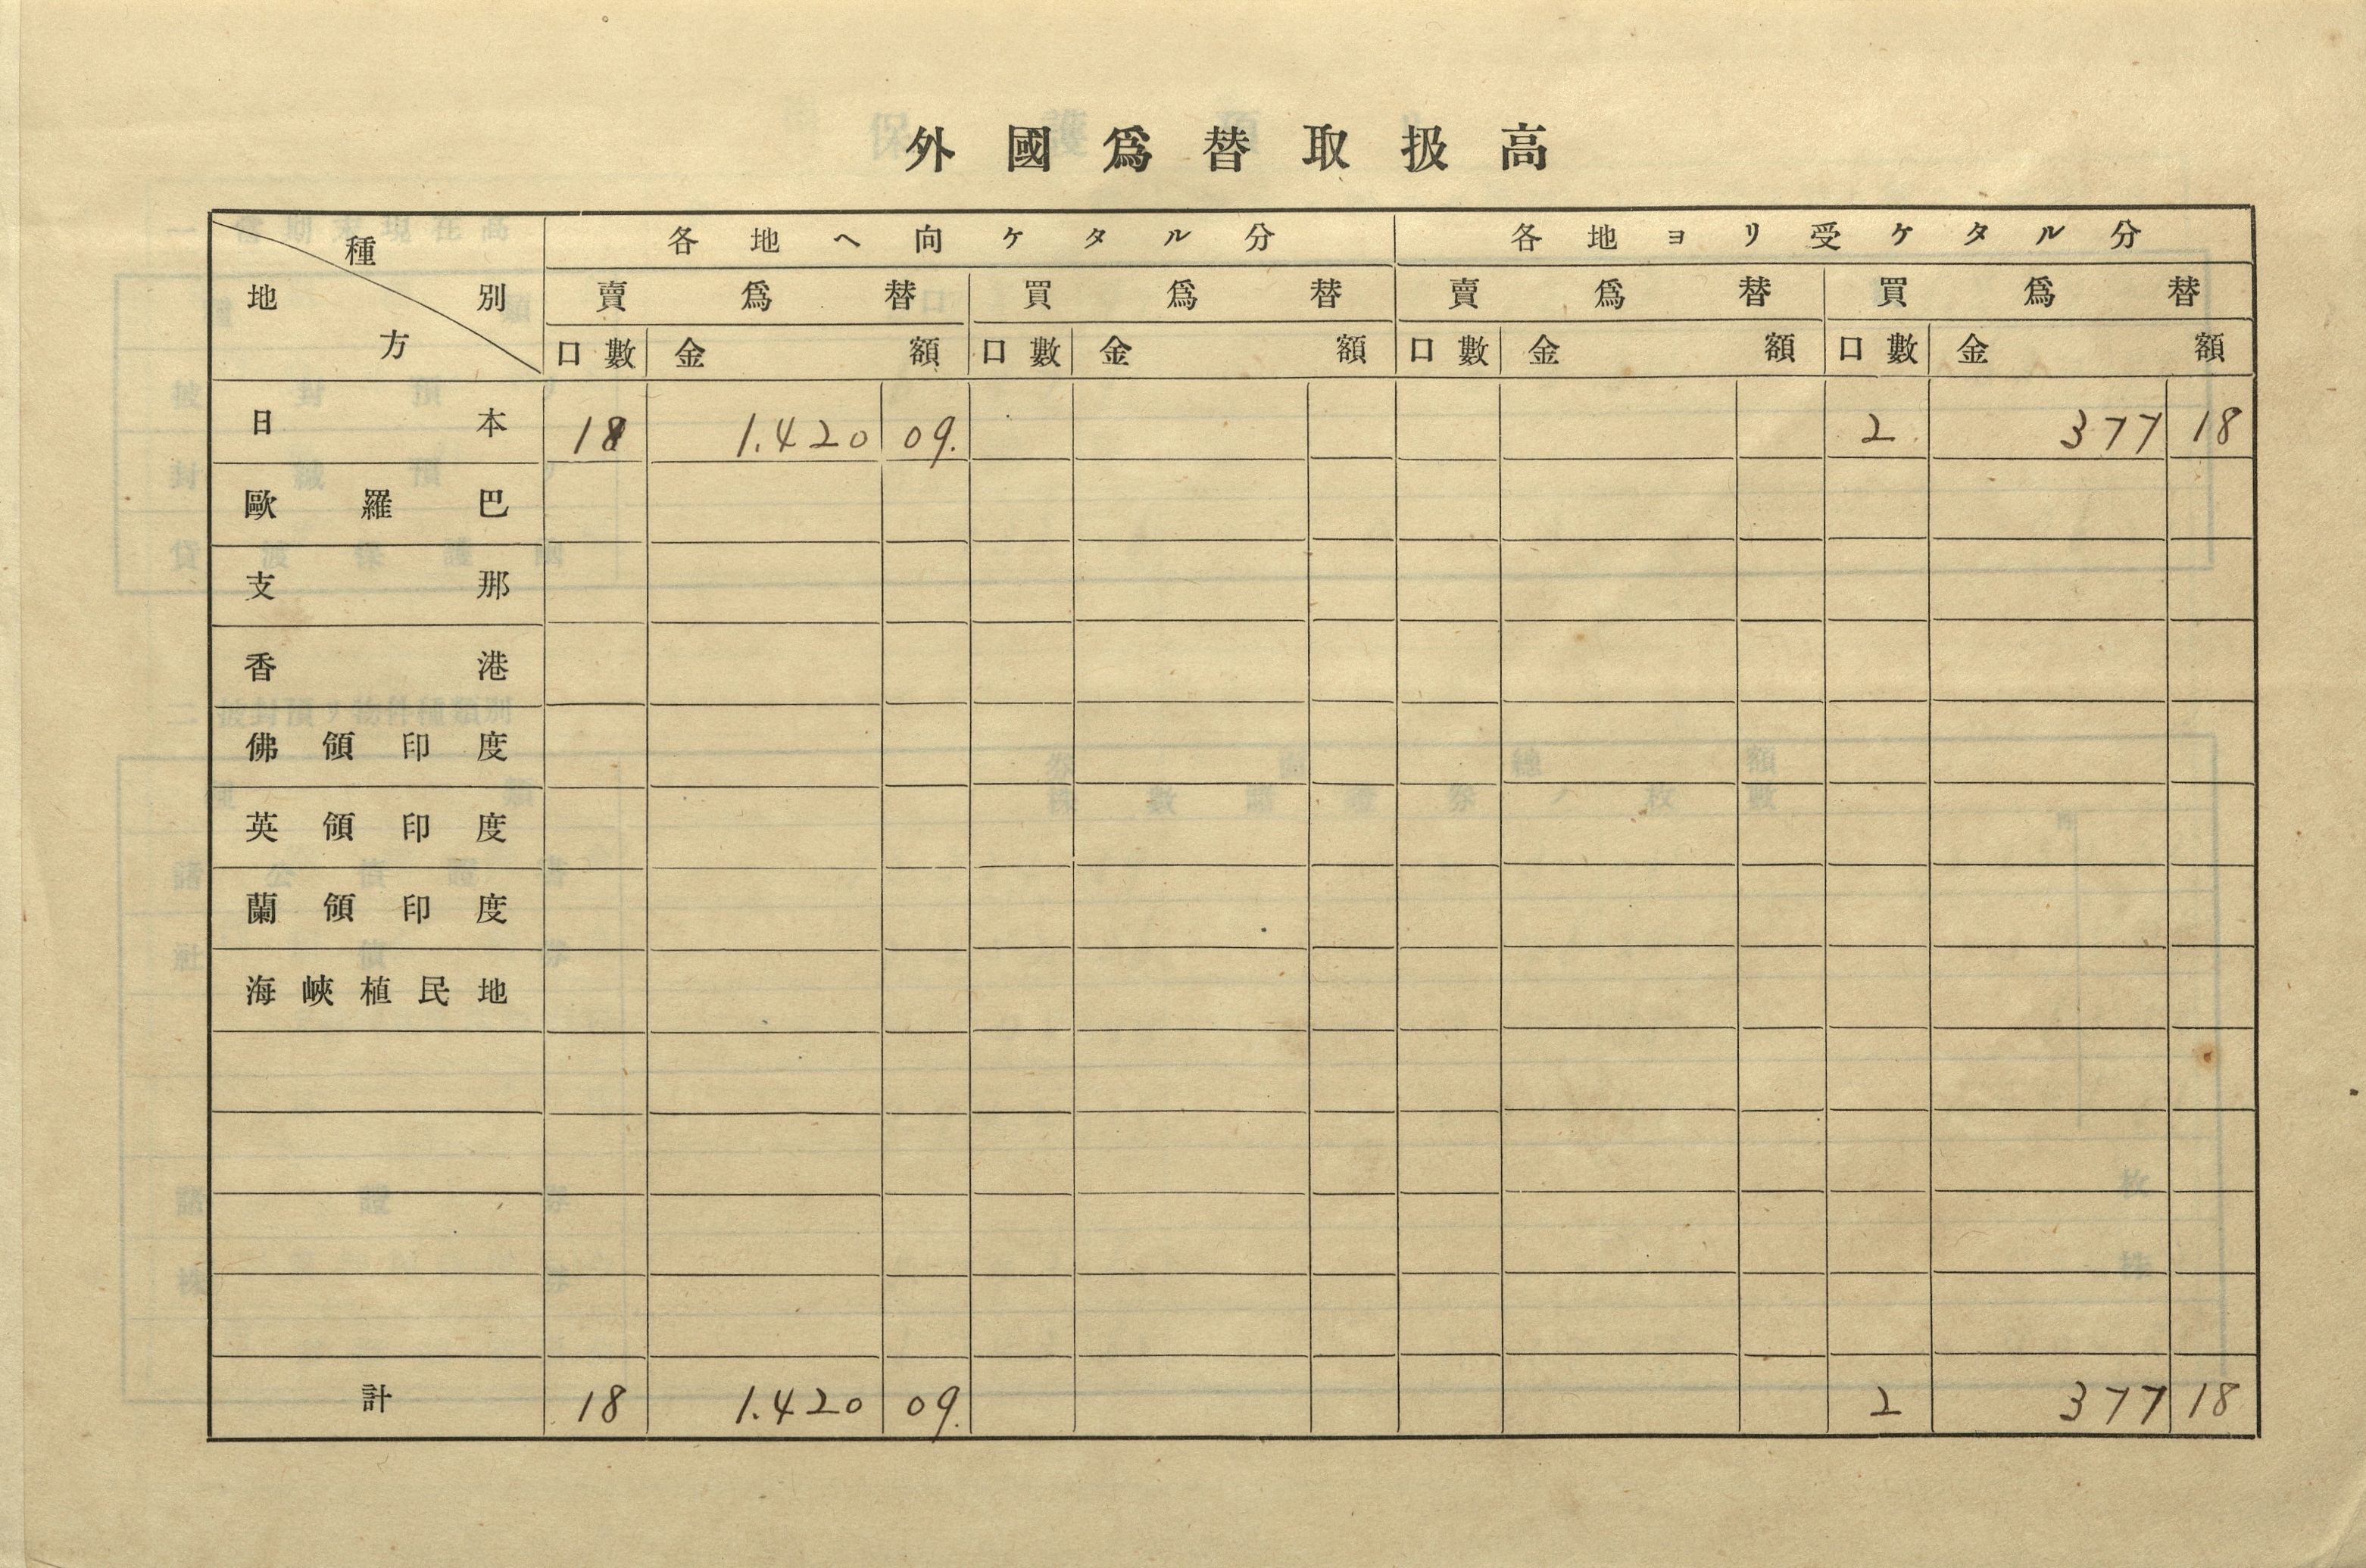 外國爲替取扱高
種別 地方 各地ヘ向ケタル分 各地ヨリ受ケタル分
賣爲替 買爲替 賣爲替 買爲替
口數 金額 口數 金額 口數 金額 口數 金額
日本 18 1.420 09. 2 377 18
歐羅巴
支那
香港
佛領印度
英領印度
蘭領印度
海峽植民地
計 18 1.420 09. 2 377 18